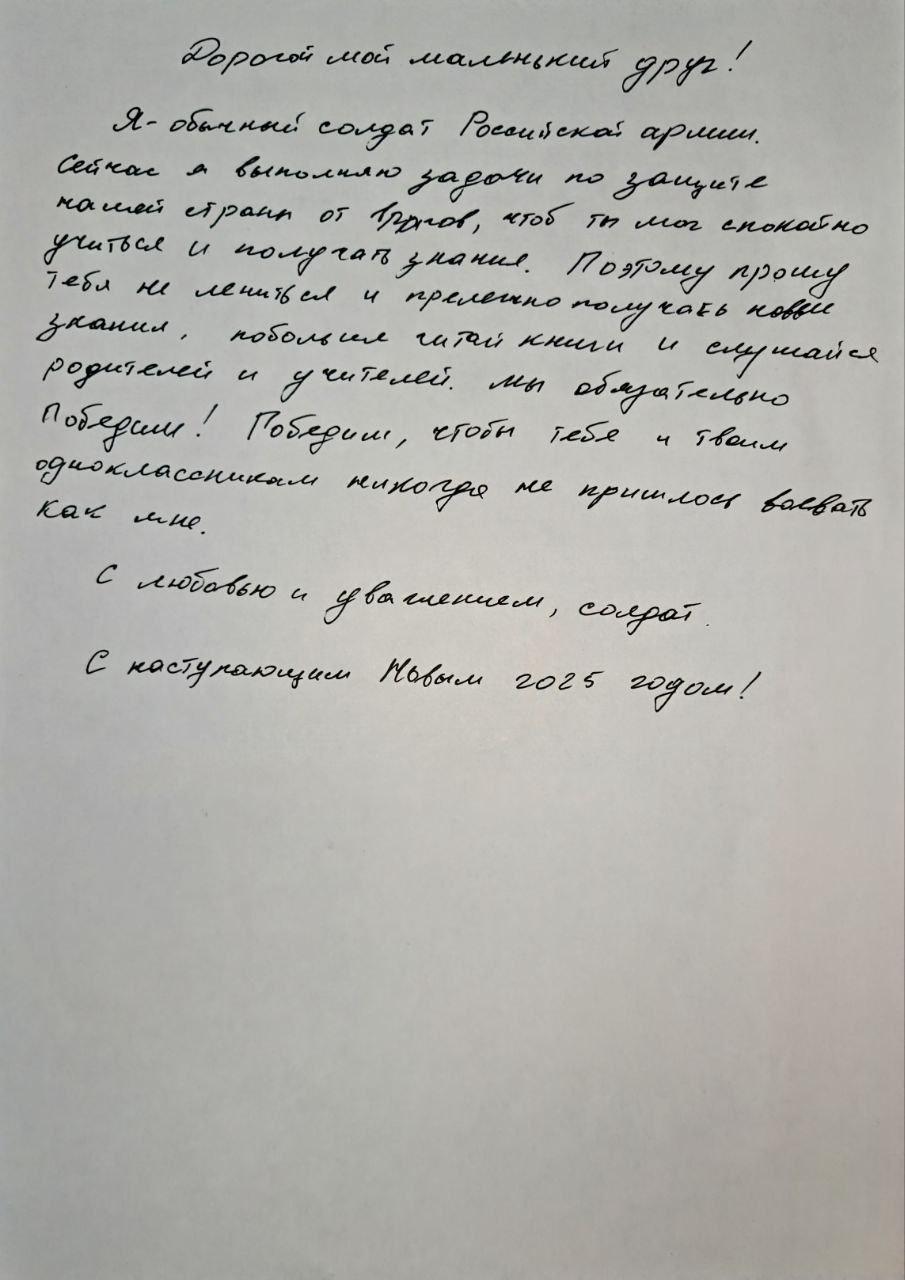 Дорогой мой маленький друг!
Я - обычный солдат Российской армии.
Сейчас я выполняю задачи по защите
нашей страны от врагов, чтоб ты мог спокойно
учиться и получать знания. Поэтому прошу
тебя не лениться и прележно получать новые
знания, побольше читай книги и слушайся
родителей и учителей. Мы обязательно
Победим! Победим, чтобы тебе и твоим
одноклассникам никогда не пришлось воевать
как мне.
С любовью и уважением, солдат.
С наступающим Новым 2025 годом!